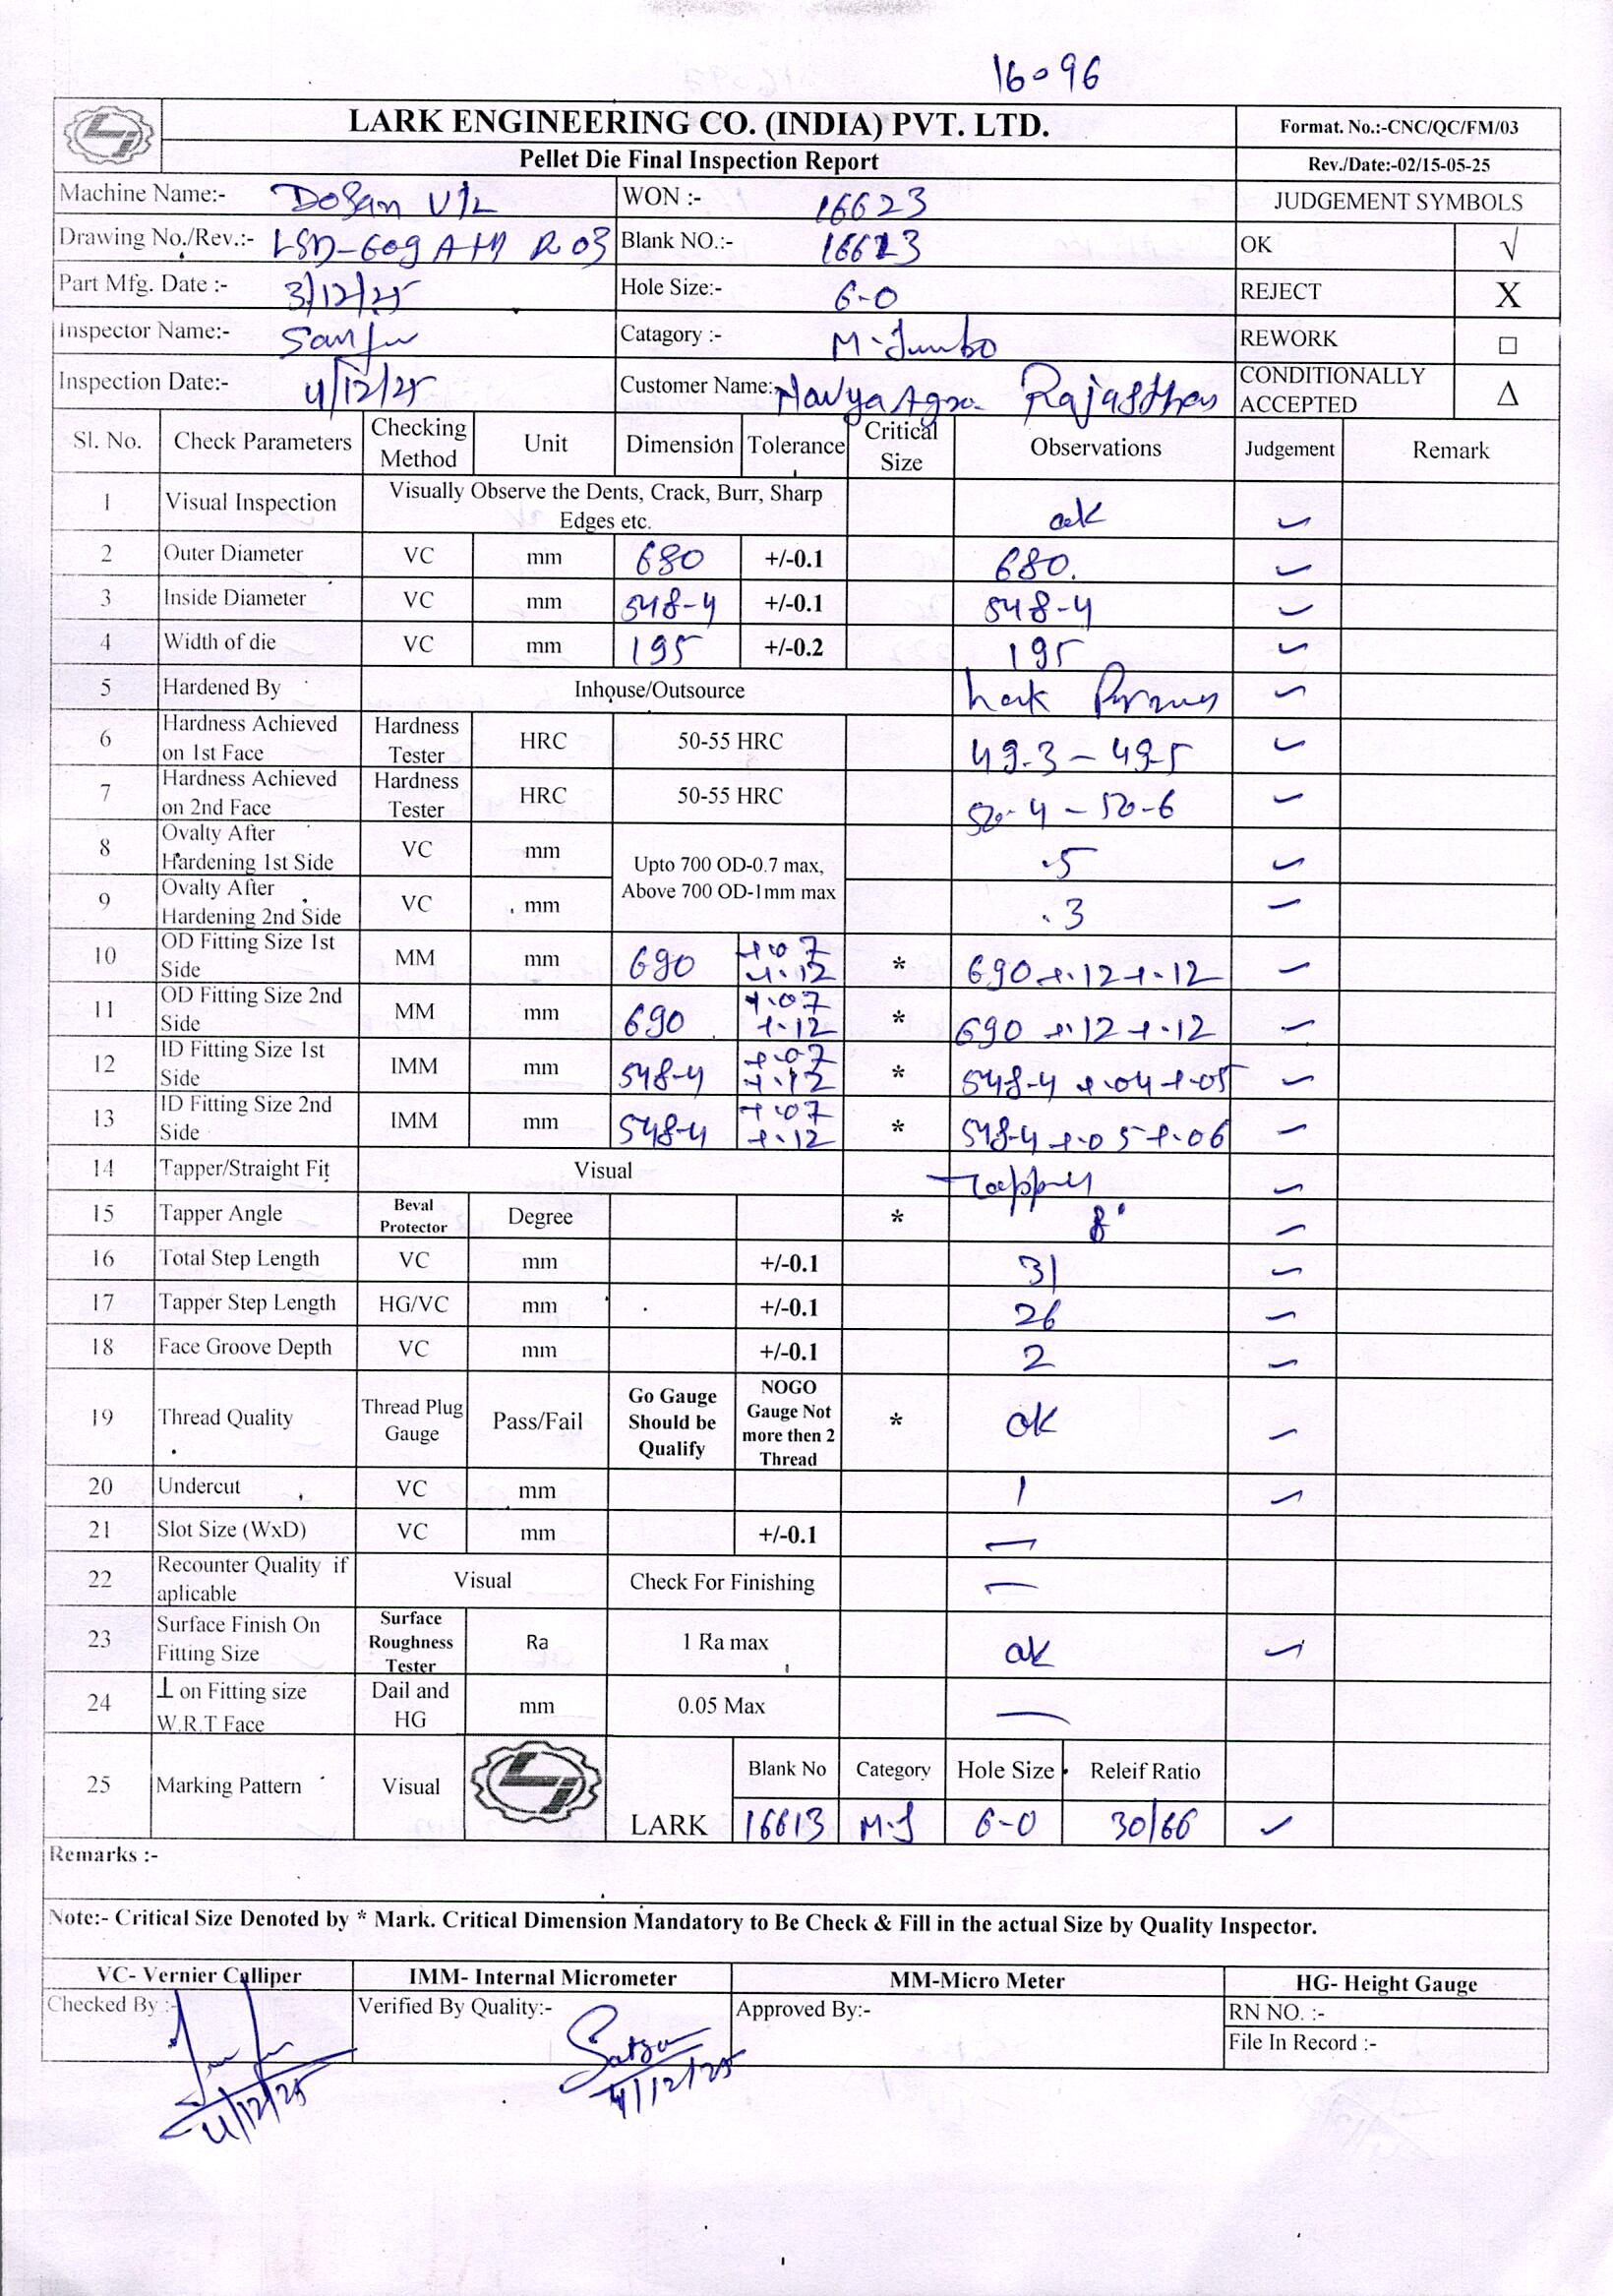 16096
LARK ENGINEERING CO. (INDIA) PVT. LTD.
Format. No.:-CNC/QC/FM/03
Pellet Die Final Inspection Report
Rev./Date:-02/15-05-25
Machine Name:- Dosan V/L WON :- 16623 JUDGEMENT SYMBOLS
Drawing No./Rev.:- LSD-609 A R 03 Blank NO.:- 16623 OK √
Part Mfg. Date :- 3/12/25 Hole Size:- 6-0 REJECT X
Inspector Name:- Catagory :- M-Jumbo REWORK □
Inspection Date:- 4/12/25 Customer Name:- Navya Agro Rajasthan CONDITIONALLY ACCEPTED Δ
Sl. No. Check Parameters Checking Method Unit Dimension Tolerance Critical Size Observations Judgement Remark
1 Visual Inspection Visually Observe the Dents, Crack, Burr, Sharp Edges etc. ok ✓
2 Outer Diameter VC mm 680 +/-0.1 680. ✓
3 Inside Diameter VC mm 548-4 +/-0.1 548-4 ✓
4 Width of die VC mm 195 +/-0.2 195 ✓
5 Hardened By Inhouse/Outsource Lark ✓
6 Hardness Achieved on 1st Face Hardness Tester HRC 50-55 HRC 49.3 - 49.5 ✓
7 Hardness Achieved on 2nd Face Hardness Tester HRC 50-55 HRC 50-4 - 50-6 ✓
8 Ovalty After Hardening 1st Side VC mm Upto 700 OD-0.7 max, Above 700 OD-1mm max .5 ✓
9 Ovalty After Hardening 2nd Side VC mm .3 ✓
10 OD Fitting Size 1st Side MM mm 690 +.07 +.12 * 690 +.12 +.12 ✓
11 OD Fitting Size 2nd Side MM mm 690 +.07 +.12 * 690 +.12 +.12 ✓
12 ID Fitting Size 1st Side IMM mm 548-4 +.07 +.12 * 548-4 +.04 +.05 ✓
13 ID Fitting Size 2nd Side IMM mm 548-4 +.07 +.12 * 548-4 +.05 +.06 ✓
14 Tapper/Straight Fit Visual Tapper ✓
15 Tapper Angle Beval Protector Degree * 8° ✓
16 Total Step Length VC mm +/-0.1 31 ✓
17 Tapper Step Length HG/VC mm +/-0.1 26 ✓
18 Face Groove Depth VC mm +/-0.1 2 ✓
19 Thread Quality Thread Plug Gauge Pass/Fail Go Gauge Should be Qualify NOGO Gauge Not more then 2 Thread * ok ✓
20 Undercut VC mm 1 ✓
21 Slot Size (WxD) VC mm +/-0.1 —
22 Recounter Quality if aplicable Visual Check For Finishing —
23 Surface Finish On Fitting Size Surface Roughness Tester Ra 1 Ra max ok ✓
24 ⊥ on Fitting size W.R.T Face Dail and HG mm 0.05 Max —
25 Marking Pattern Visual LARK Blank No Category Hole Size Releif Ratio
16613 M.J 6-0 30/66 ✓
Remarks :-
Note:- Critical Size Denoted by * Mark. Critical Dimension Mandatory to Be Check & Fill in the actual Size by Quality Inspector.
VC- Vernier Calliper IMM- Internal Micrometer MM-Micro Meter HG- Height Gauge
Checked By :- Verified By Quality:- Approved By:- RN NO. :-
File In Record :-
4/12/25 4/12/25